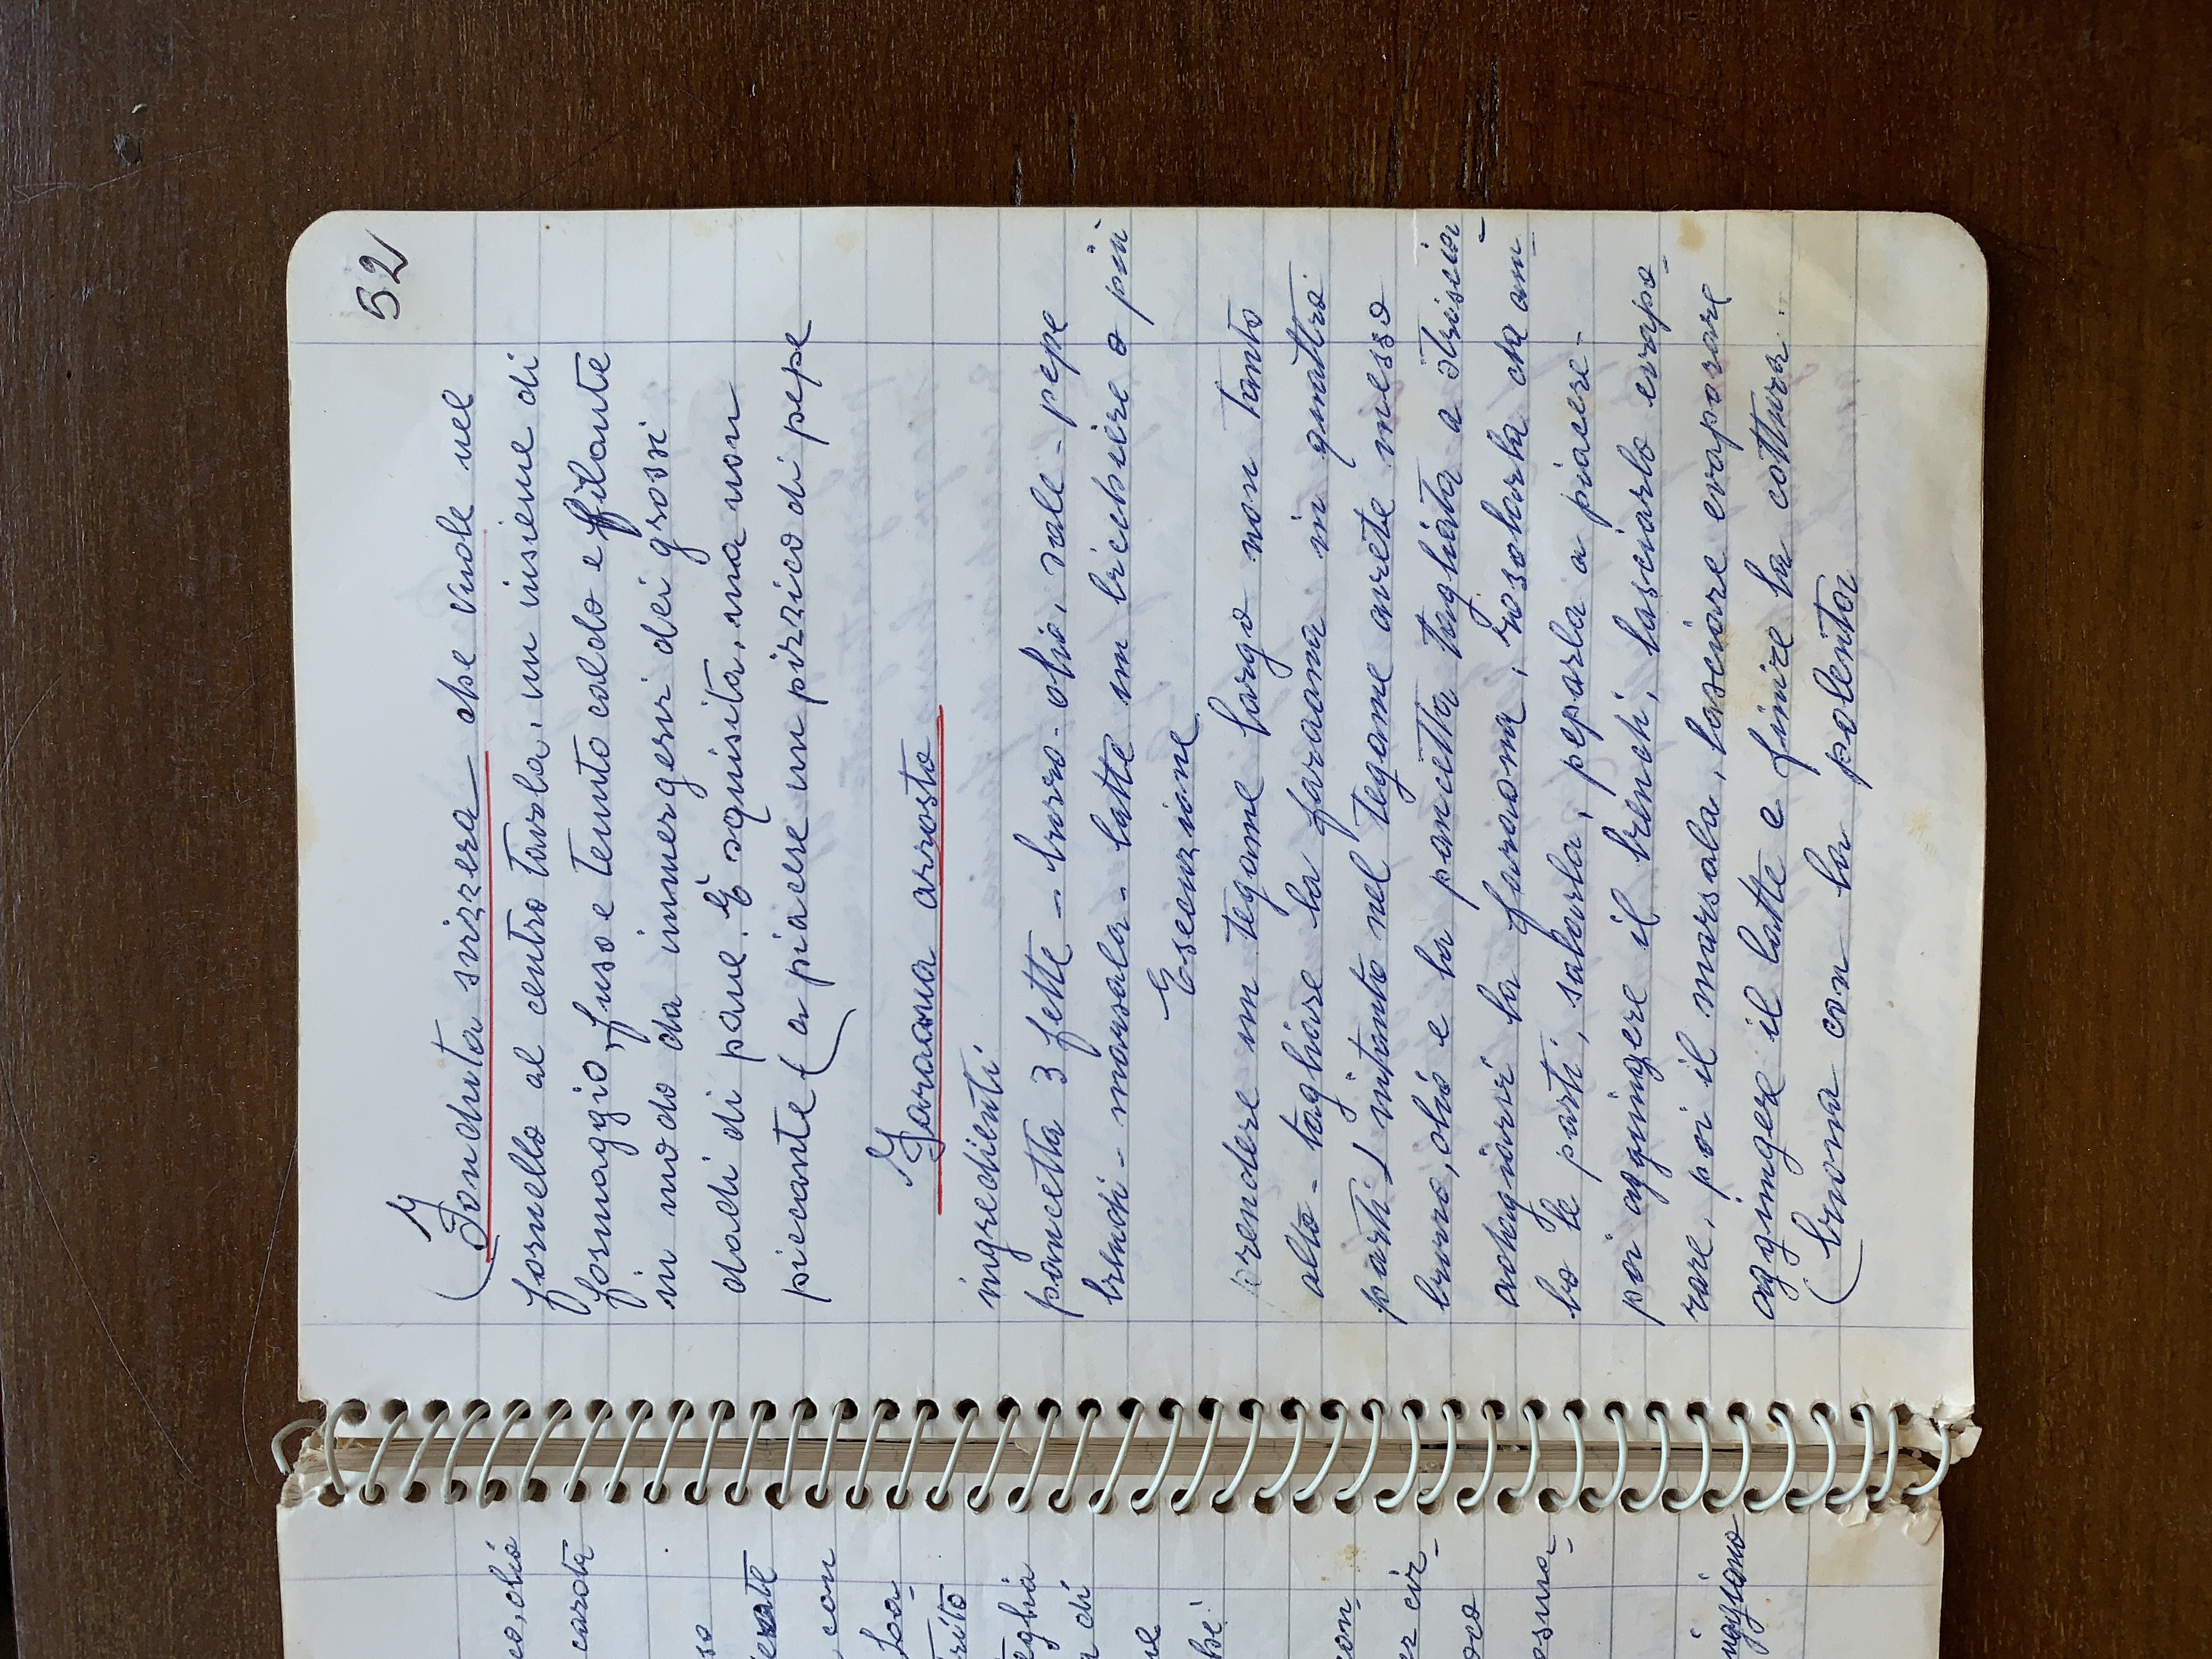 co, olio
carota
so
con
trito
teglia
a di
con-
er cir-
oco
uggiano
52
(Fonduta svizzera che vuole nel
fornello al centro tavola, un insieme di
formaggio, fuso e tenuto caldo e filante
in modo da immergervi dei grossi
dadi di pane. È squisita, ma non
piccante ( a piacere un pizzico di pepe
Faraona arrosto
ingredienti
pancetta 3 fette - burro - olio, sale - pepe
brendi - marsala - latte un bicchiere o più
Esecuzione
prendere un tegame largo non tanto
alto - tagliare la faraona in quattro
parti) intanto nel tegame avrete messo
burro, olio e la pancetta tagliata a striscia-
adagiarvi la faraona, rosolarla da am-
bo le parti, salarla, peparla a piacere -
poi aggiungere il brendi, lasciarlo evapo-
rare, poi il marsala, lasciare evaporare
aggiungere il latte e finire la cottura.
( buona con la polenta